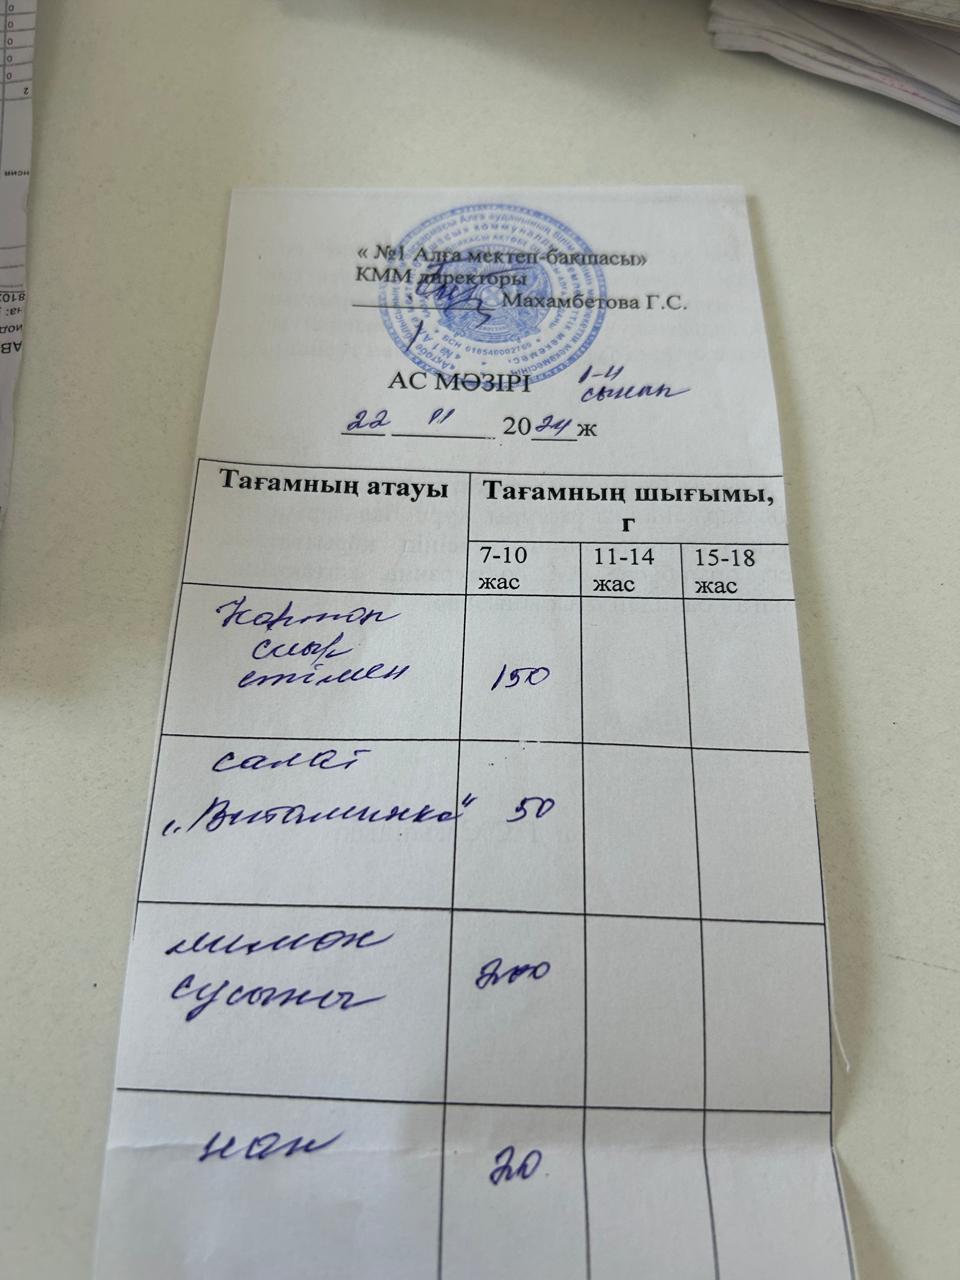 « №1 Алға мектеп-бақшасы»
КММ директоры
Махамбетова Г.С.
БСН 010540002760
АС МӘЗІРІ 1-4
сынып
22 11 2024ж
Тағамның атауы Тағамның шығымы,
г
7-10 11-14 15-18
жас жас жас
Картоп
сиыр
етімен 150
салат
"Витаминка" 50
лимон
сусыны 200
нан 20